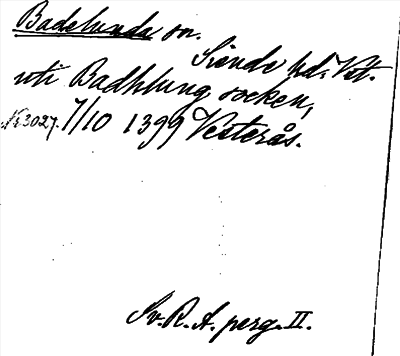 Badelunda sn.
Siende hd. Vst.
uti Badhlung socken,
N:3027. 7/10 1399 Vesterås.
Sv. R. A. perg. II.